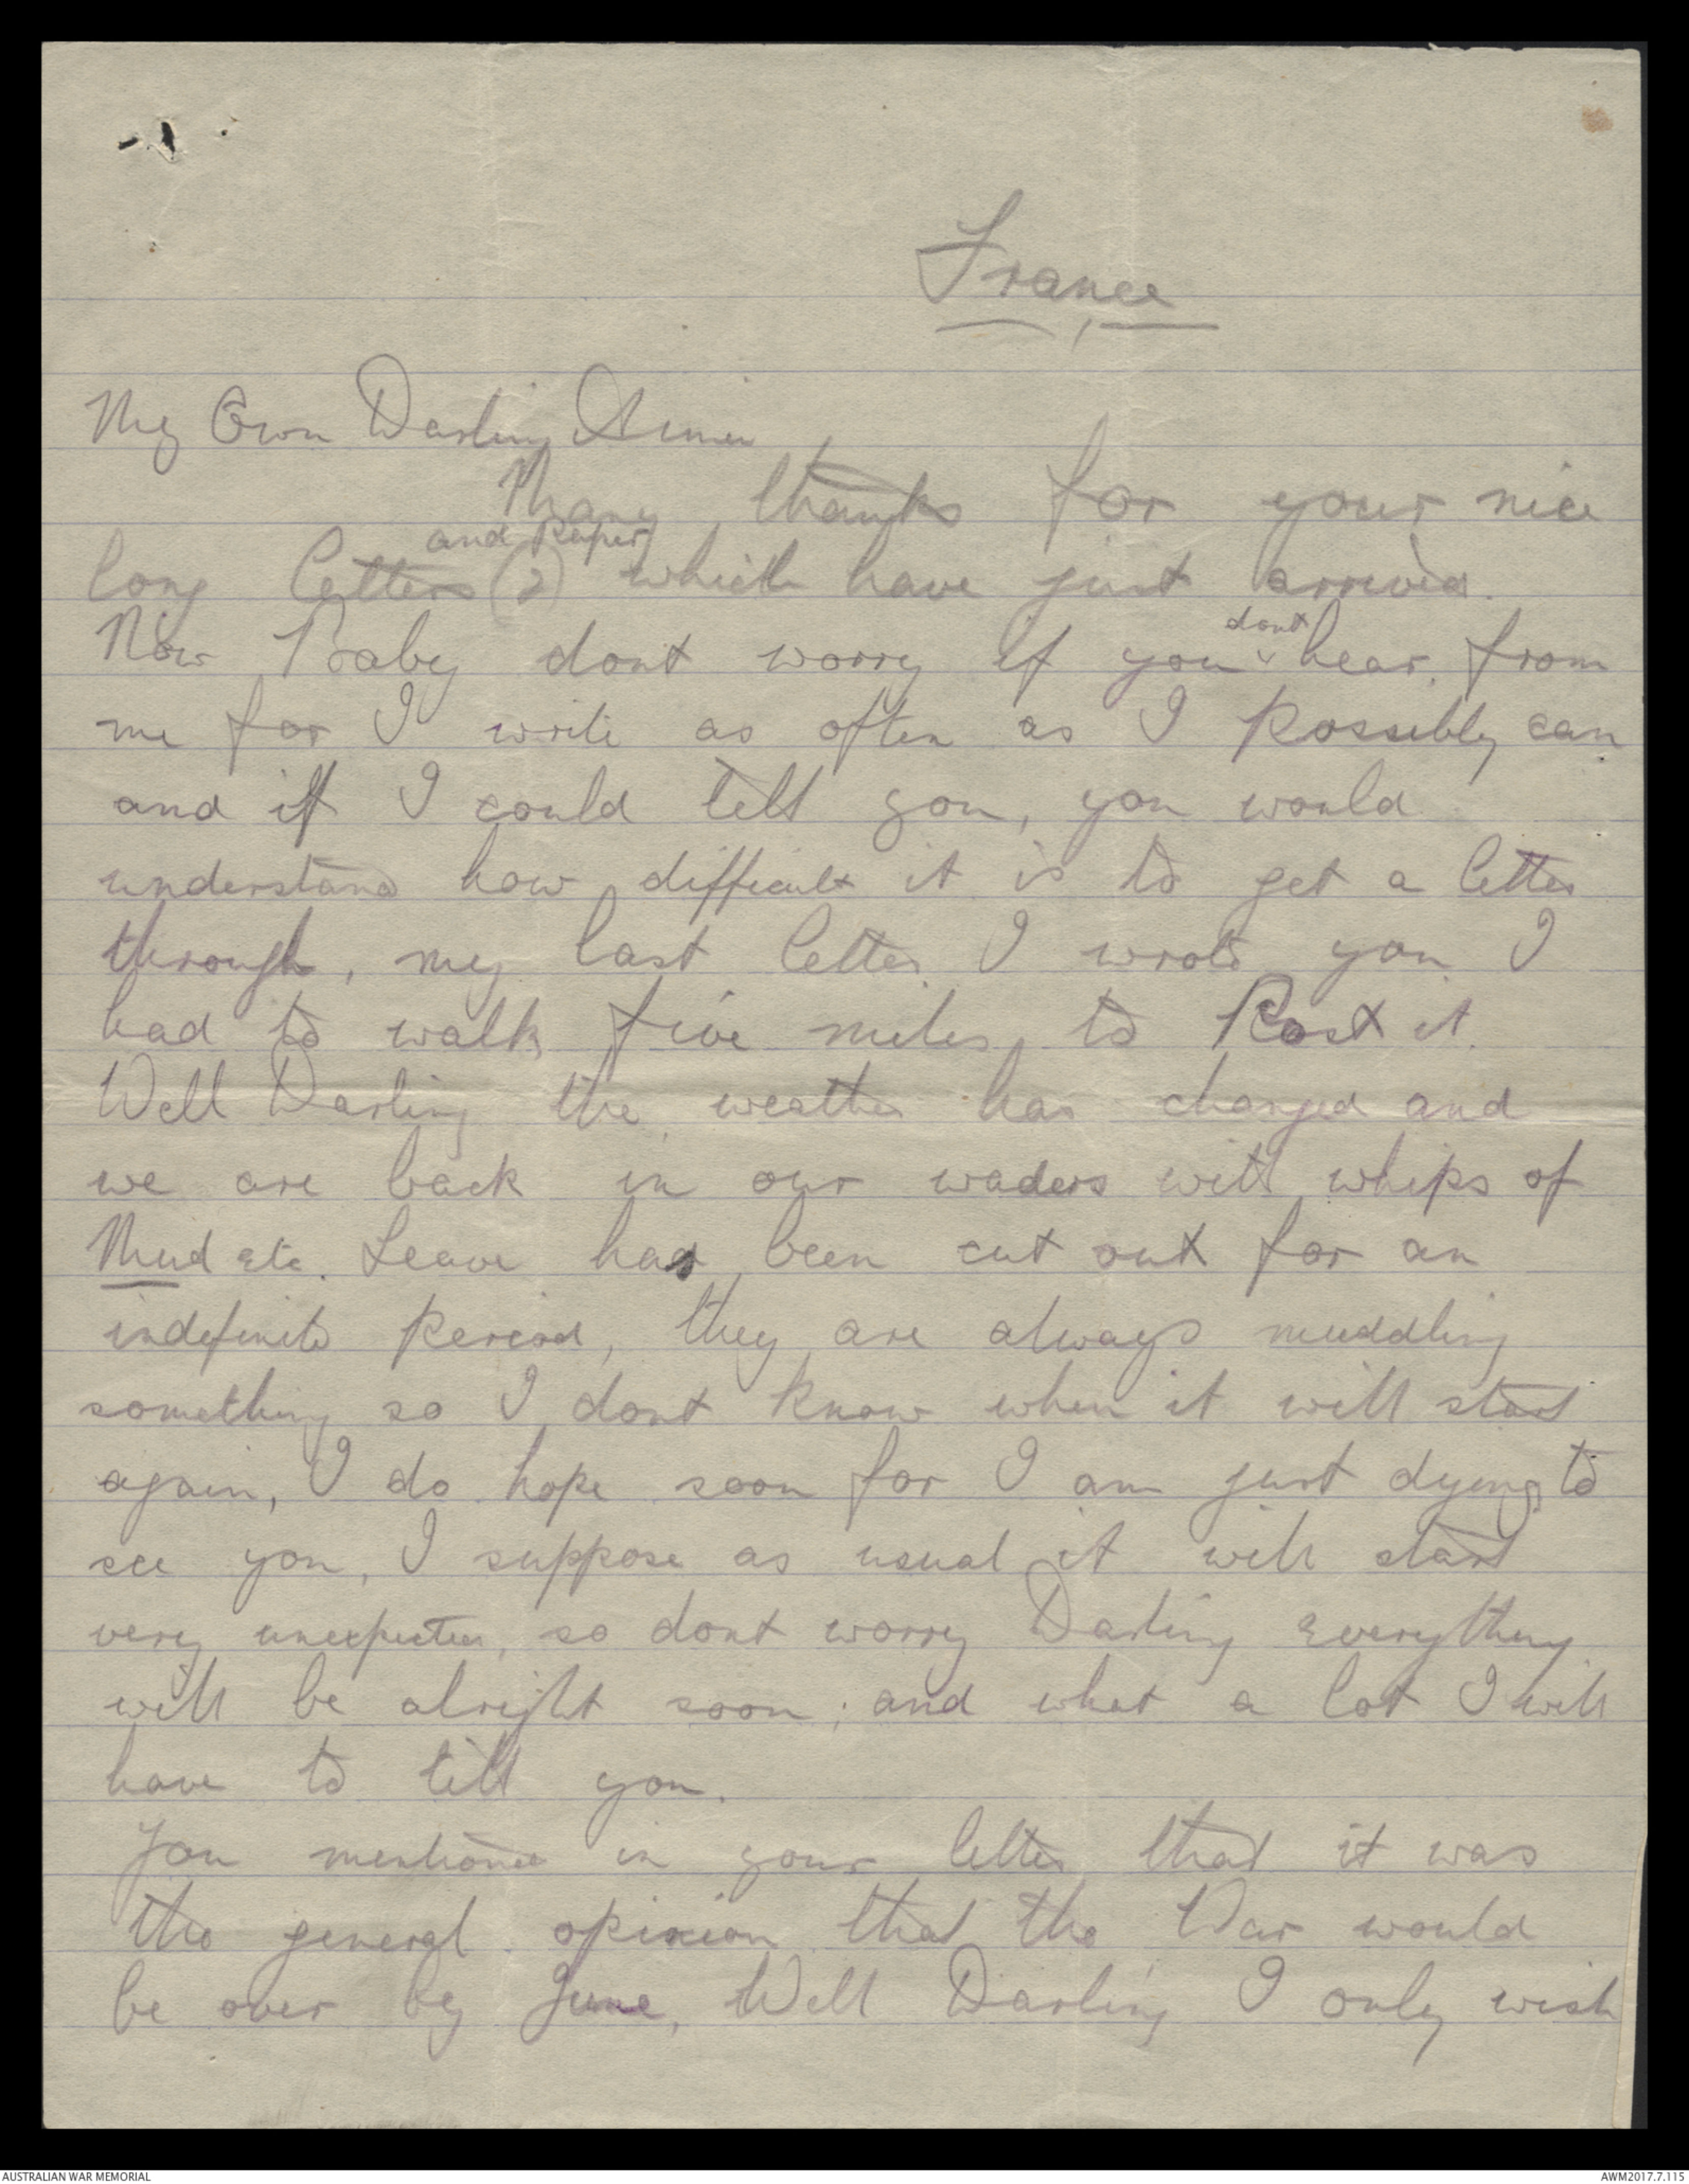 France
My Own Darling
Many thanks for your nice
and paper
long letters (2) which have just arrived.
Now Baby dont worry if you dont hear from
me for I write as often as I possibly can
and if I could tell you, you would
understand how difficult it is to get a letter
through, my last letter I wrote you I
had to walk five miles to Post it.
Well Darling the weather has changed and
we are back in our waders with whips of
Mud etc. Leave has been cut out for an
indefinite period, they are always muddling
something so I dont know when it will start
again, I do hope soon for I am just dying to
see you, I suppose as usual it will start
very unexpected, so dont worry Darling everything
will be alright soon, and what a lot I will
have to tell you.
You mentioned in your letter that it was
the general opinion that the War would
be over by June, Well Darling I only wish
AUSTRALIAN WAR MEMORIAL AWM2017.7.115